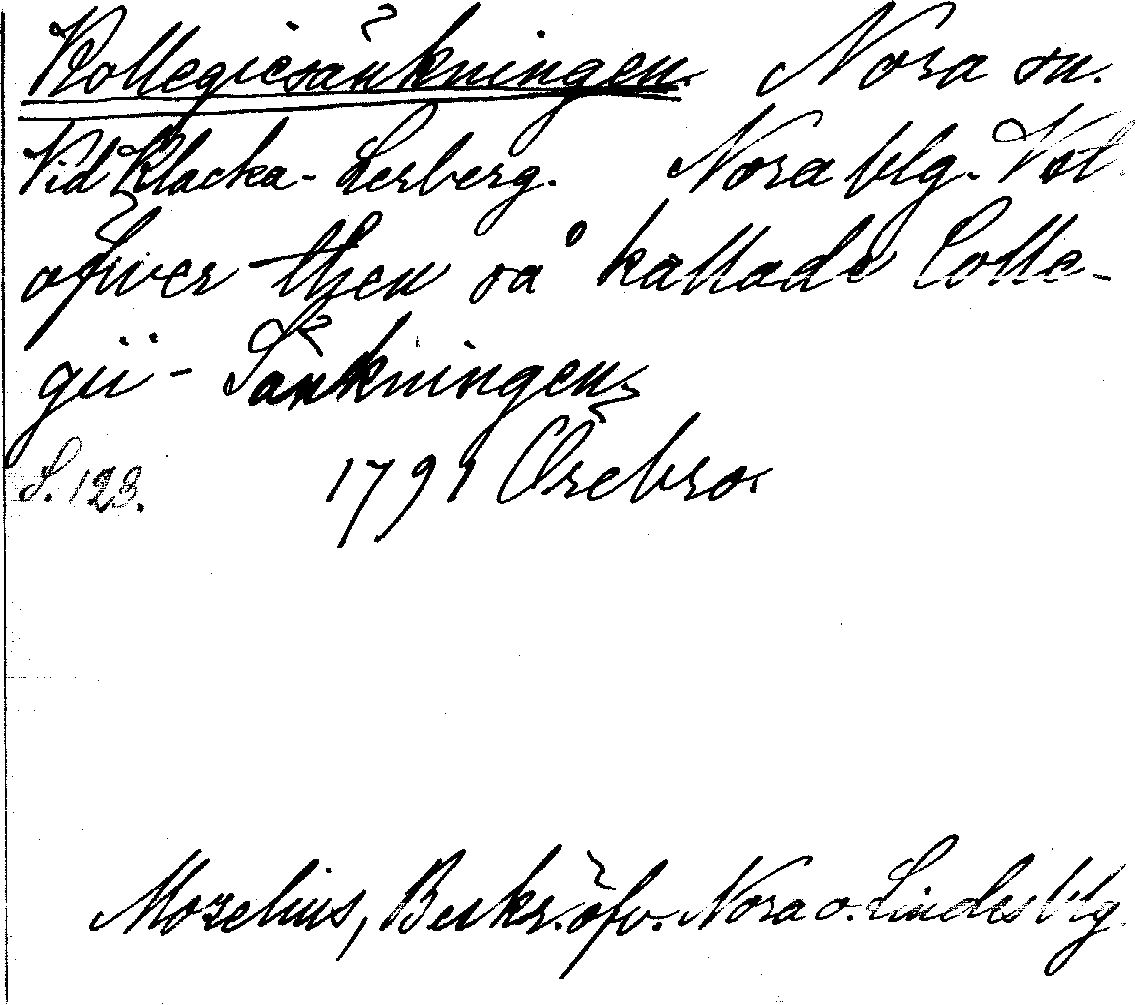 Kollegiesänkningen. Nora sn.
Vid Klacka-Lerberg. Nora blg. Vstl.
öfwer then så kallade Colle-
gii-Sänkningen
S. 123. 1791 Örebro.
Mozelius, Beskr. öfv. Nora o. Lindes blg.